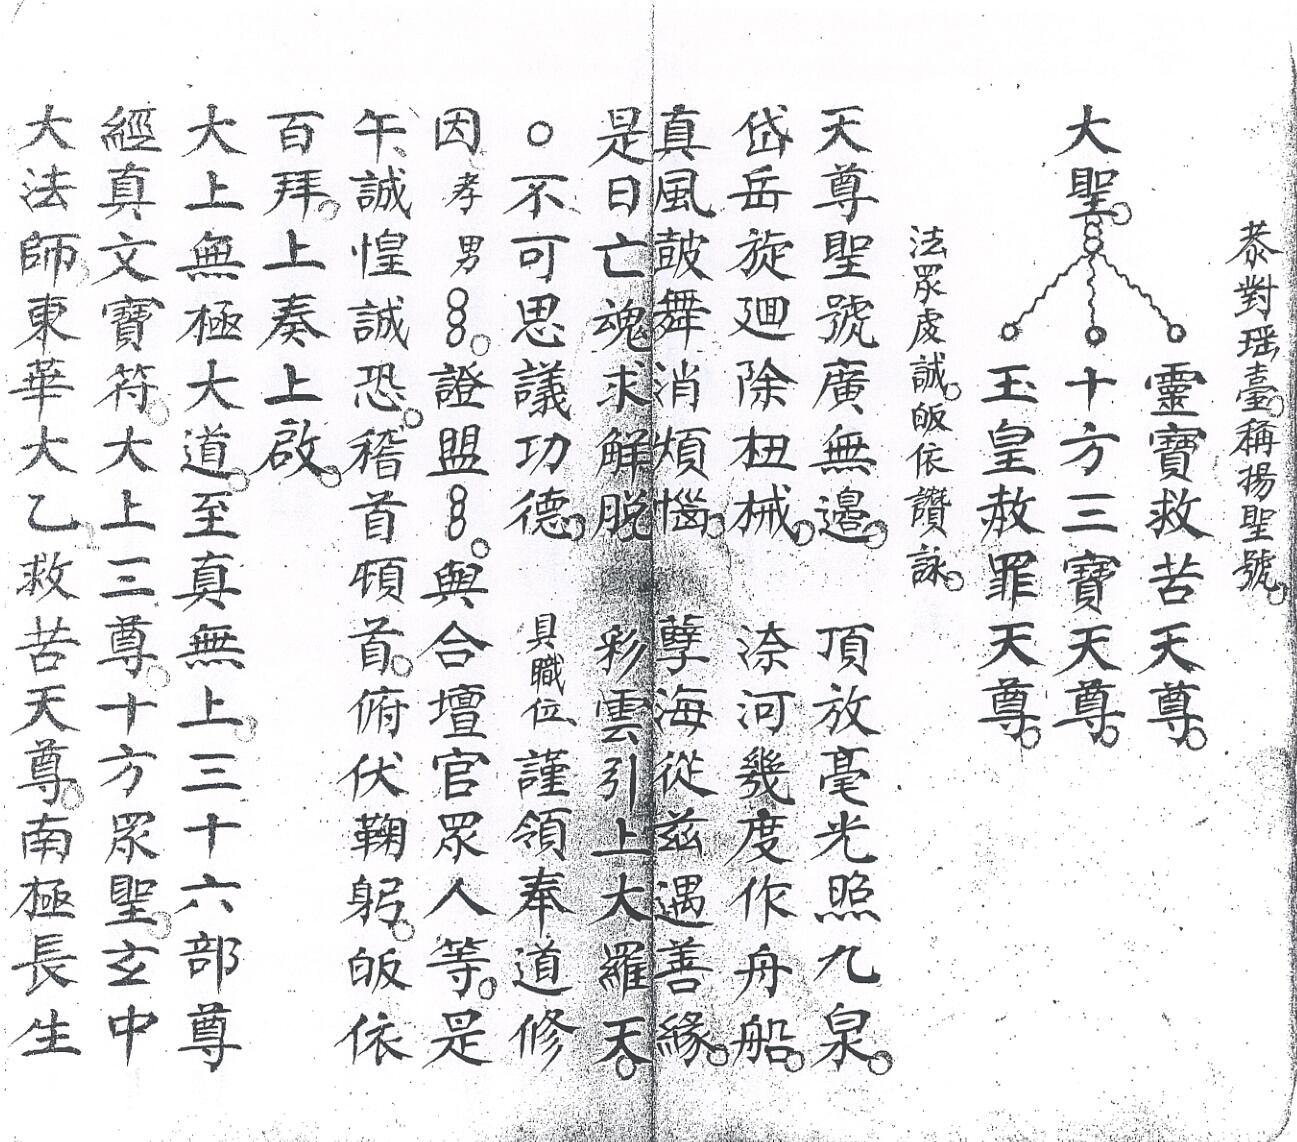 恭對瑶臺。稱揚聖號。
大聖。
靈寶救苦天尊。
十方三寶天尊。
玉皇赦罪天尊。
法眾虔誠。皈依讚詠。
天尊聖號廣無邊。頂放毫光照九泉。
岱岳旋廻除杻械。渿河幾度作舟船。
真風鼓舞消煩惱。孽海從兹遇善緣。
是日亡魂求解脫 彩雲引上大羅天。
○不可思議功德。具職位謹領奉道修
因孝男 證盟 與合壇官眾人等。是
午誠惶誠恐。稽首頓首。俯伏鞠躬。皈依
百拜。上奏上啟。
大上無極大道。至真無上。三十六部尊
經真文寶符。大上三尊。十方眾聖。玄中
大法師。東華大乙救苦天尊。南極長生